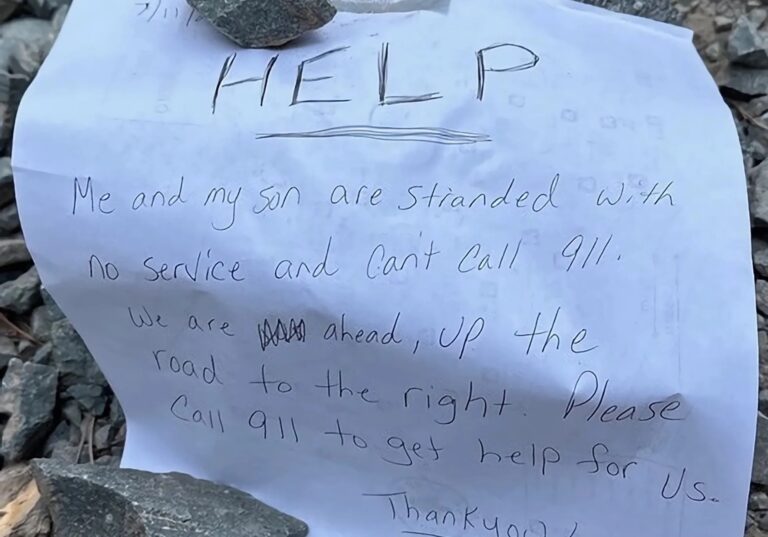 HELP
Me and my son are stranded with
no service and Can't Call 911.
We are ahead, up the
road to the right. Please
Call 911 to get help for Us.
Thankyou!